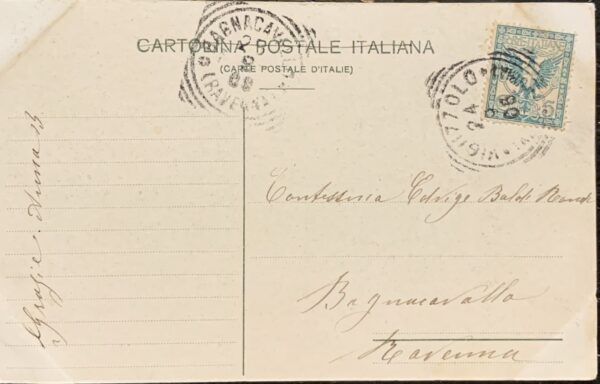 CARTOLINA POSTALE ITALIANA
(CARTE POSTALE D'ITALIE)
BAGNACAVALLO
(RAVENNA)
08
5
2 A
08
Contessina Edvige Baldi
Bagnacavallo
Ravenna
Grazie.